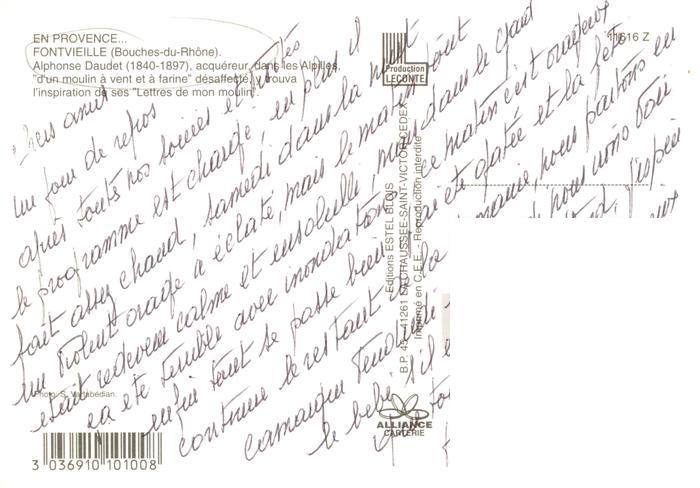 EN PROVENCE...
FONTVIEILLE (Bouches-du-Rhône).
Alphonse Daudet (1840-1897), acquéreur, dans les Alpilles,
"d'un moulin à vent et à farine" désaffecté, y trouva
l'inspiration de ses "Lettres de mon moulin".
11616 Z
Production
LECONTE
Chers amis
un jour de repos
après toutes nos soirées et
le programme est changé, en plus il
fait assez chaud, samedi dans la nuit
un violent orage a éclaté, mais le matin tout
était redevenu calme et ensoleillé, mais dans le Gard
ça été terrible avec inondations, ce matin c'est orageux
enfin tout se passe bien été gâtée et la fête
continue le restant de la nous partons en
camargue
le bébé s'il
Editions ESTEL BLOIS
B.P. 45 - 41261 LA CHAUSSEE-SAINT-VICTOR CEDEX
Imprimé en C.E.E. - Reproduction interdite
Photo: S. Vartabédian.
ALLIANCE
CARTERIE
3 036910 101008